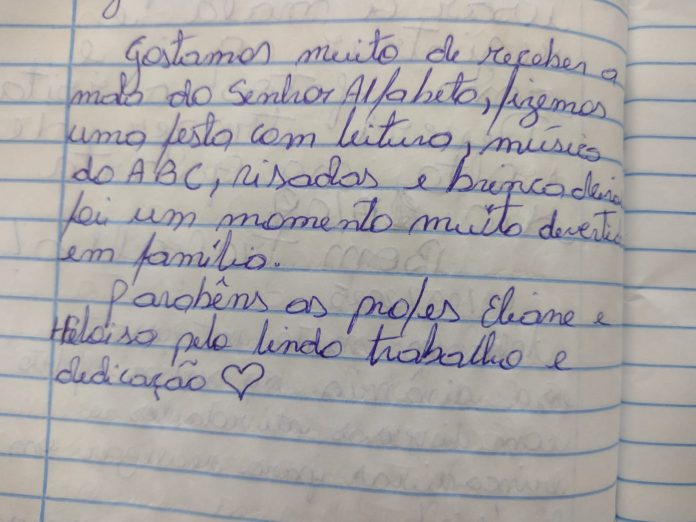 Gostamos muito de receber a
mala do Senhor Alfabeto, fizemos
uma festa com leitura, música
do ABC, risadas e brincadeira
foi um momento muito diverti
em família.
Parabêns as profes Eliane e
Heloisa pelo lindo trabalho e
dedicação ♡